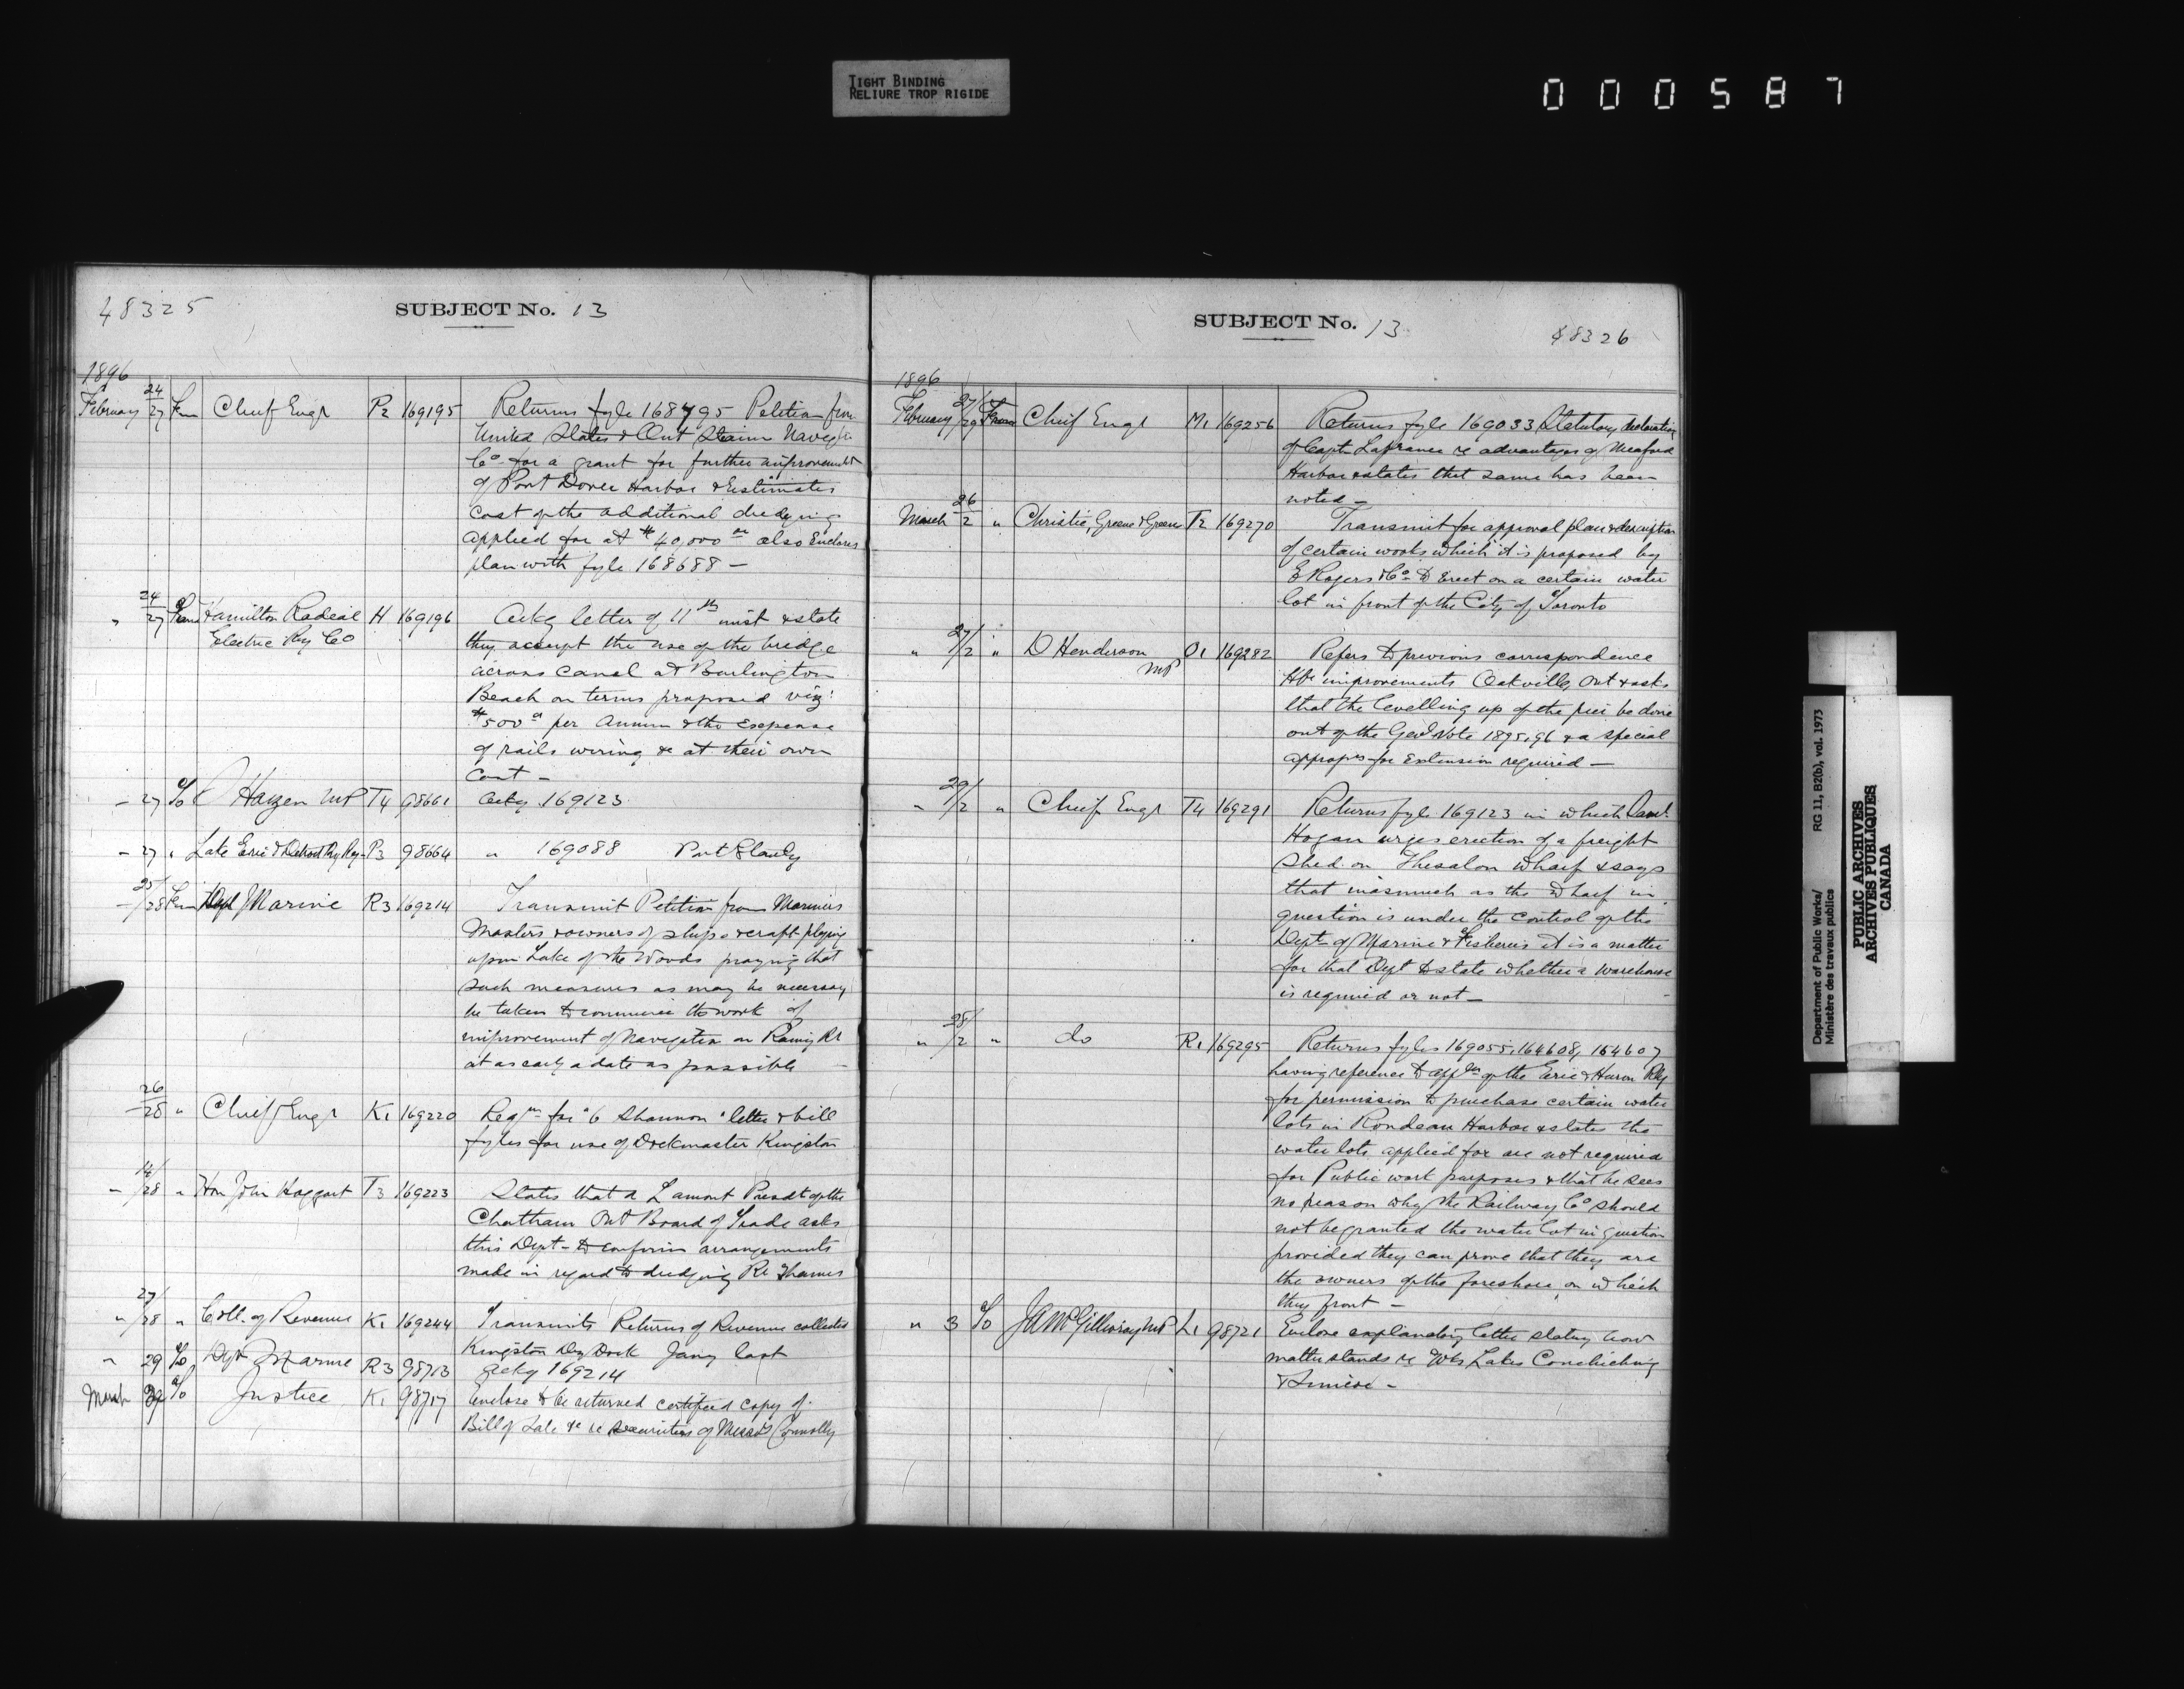 TIGHT BINDING
RELIURE TROP RIGIDE
000587
48325
SUBJECT No. 13
1896
February 24/27 From Chief Engr P2 169195 Returns fyle 168795 Petition from
United States & Ont Steam Navegtn
Co for a grant for further improvements
of Port Dover Harbor & Estimates
Cost of the additional dredging
applied for at $40,000 also Encloses
plan with fyle 168688 —
" 24/27 From Hamilton Radeal H 169196 Ackg letter of 11th inst & state
Electric Ry Co they accept the use of the bridge
across canal at Burlington
Beach on terms proposed viz:
$500 per Annum & the Expense
of rails wiring &c at their own
Cost —
" 27 To Hazen MP T4 98661 Ackg 169123
" 27 " Lake Erie & Detroit Ry P3 98664 " 169088 Port Stanley
" 25/28 From Dept Marine R3 169214 Transmit Petition from Mariners
Masters & owners of ships & craft plying
upon Lake of the Woods praying that
such measures as may be necessary
be taken to commence the work of
improvement of Navegation on Rainy Rr
at as early a date as possible —
26/28 " Chief Engr K1 169220 Reqn for 6 Shannon letter & bill
fyles for use of Dockmaster Kingston
" 14/28 " Hon John Haggart T3 169223 States that a Lamont Presdt of the
Chatham Ont Board of Trade asks
this Dept to confirm arrangements
made in regard to dredging Rr Thames
" 27/28 " Coll. of Revenue K1 169244 Transmits Returns of Revenue collected
Kingston Dry Dock Jany last
" 29 To Dept Marine R3 98713 Ackg 169214
March To Justice K1 98717 Enclose to be returned certified copy of
Bill of Sale &c re securities of Messrs Connolly
SUBJECT No. 13
48326
1896
February 27/29 From Chief Engr M1 169256 Returns fyle 169033 Statutory declaration
of Capt Lafrance re advantages of Meaford
Harbor & states that same has been
noted —
March 26/2 " Christie, Greene & Greene T2 169270 Transmit for approval plan & description
of certain works which it is proposed by
E Rogers & Co to Erect on a certain water
lot in front of the City of Toronto
" 27/2 " D Henderson O1 169282 Refers to previous correspondence
MP Hbr improvements Oakville, Ont & asks
that the levelling up of the pier be done
out of the Genl Vote 1895-96 & a special
appropn for Extension required —
" 29/2 " Chief Engr T4 169291 Returns fyle 169123 in which
Hogan urges erection of a freight
shed on Thesalon wharf & says
that inasmuch as the wharf in
question is under the control of the
Dept of Marine & Fisheries it is a matter
for that Dept to state whether a warehouse
is required or not —
" 28/2 " do R1 169295 Returns fyles 169055, 164608, 164607
having reference to appn of the Erie & Huron Rly
for permission to purchase certain water
lots in Rondeau Harbor & states the
water lots applied for are not required
for Public work purposes & that he sees
no reason why the Railway Co should
not be granted the water lot in question
provided they can prove that they are
the owners of the foreshore, on which
they front —
" 3 To JA McGillivray MP L1 98721 Enclose explanatory letter stating how
matter stands re Wks Lakes Couchiching
& Simcoe —
Department of Public Works/ RG 11, B2(b), vol. 1973
Ministère des travaux publics
PUBLIC ARCHIVES
ARCHIVES PUBLIQUES
CANADA